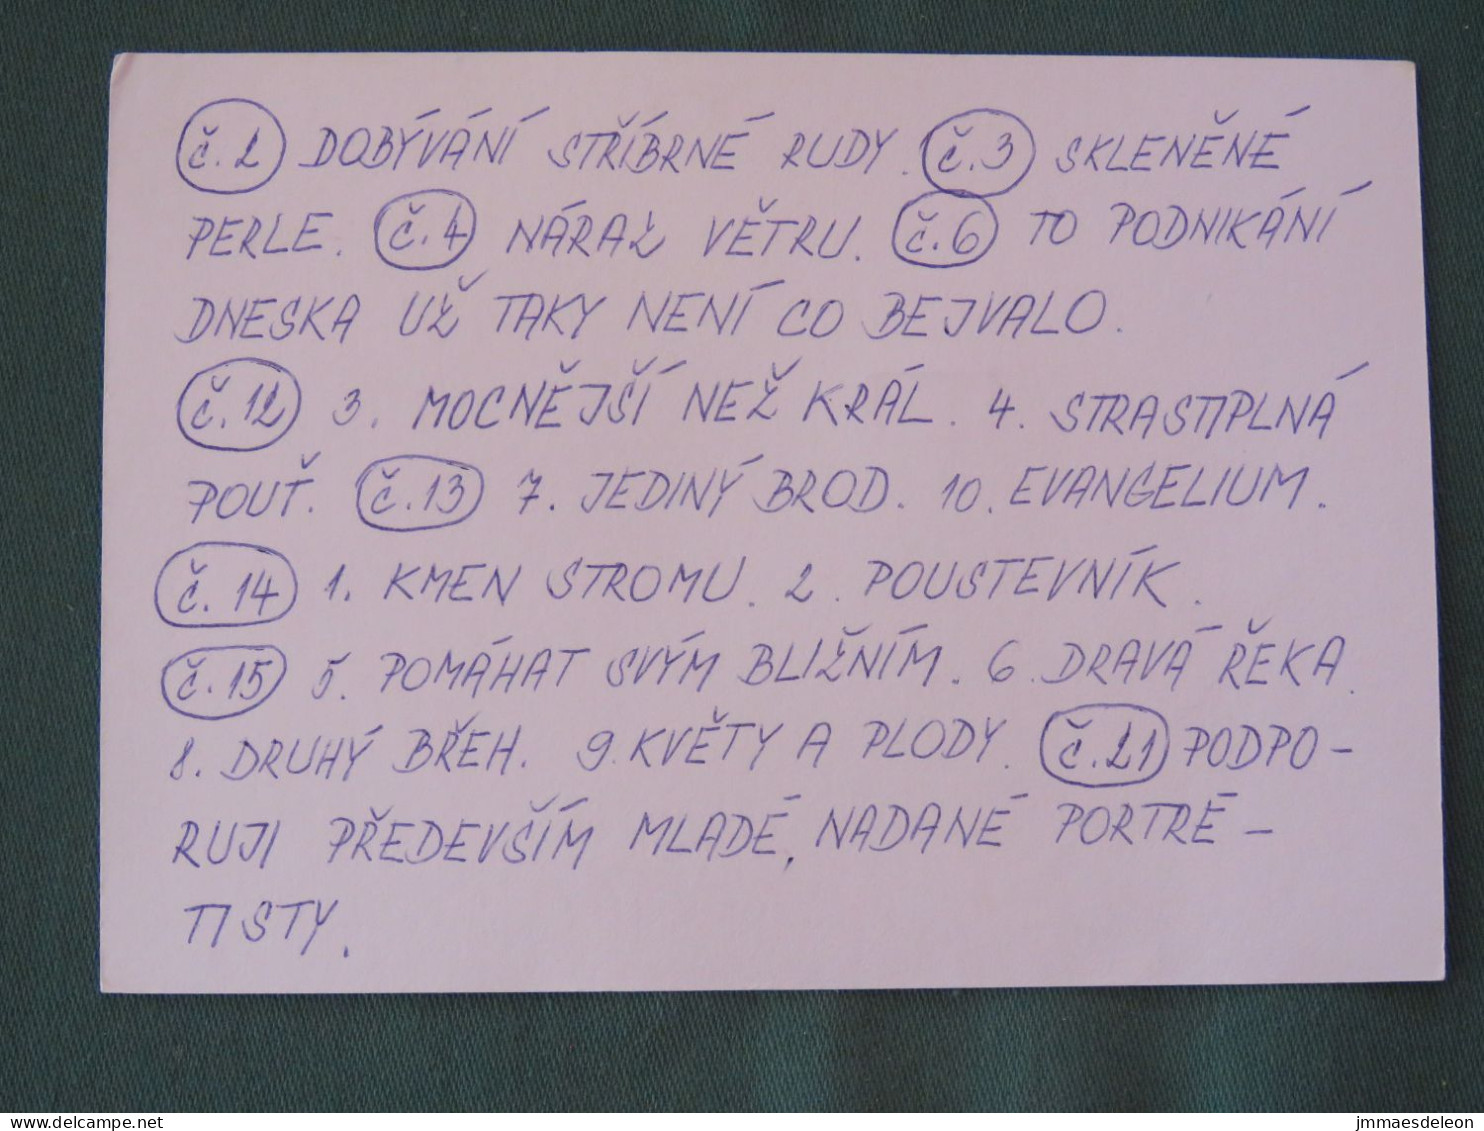 č.2 DOBÝVÁNÍ STŘÍBRNÉ RUDY. č.3 SKLENĚNÉ
PERLE. č.4 NÁRAZ VĚTRU. č.6 TO PODNIKÁNÍ
DNESKA UŽ TAKY NENÍ CO BEJVALO.
č.12 3. MOCNĚJŠÍ NEŽ KRÁL. 4. STRASTIPLNÁ
POUŤ. č.13 7. JEDINÝ BROD. 10. EVANGELIUM.
č.14 1. KMEN STROMU. 2. POUSTEVNÍK.
č.15 5. POMÁHAT SVÝM BLIŽNÍM. 6. DRAVÁ ŘEKA.
8. DRUHÝ BŘEH. 9. KVĚTY A PLODY. č.21 PODPO-
RUJI PŘEDEVŠÍM MLADÉ, NADANÉ PORTRÉ-
TISTY.
www.delcampe.net
jmmaesdeleon